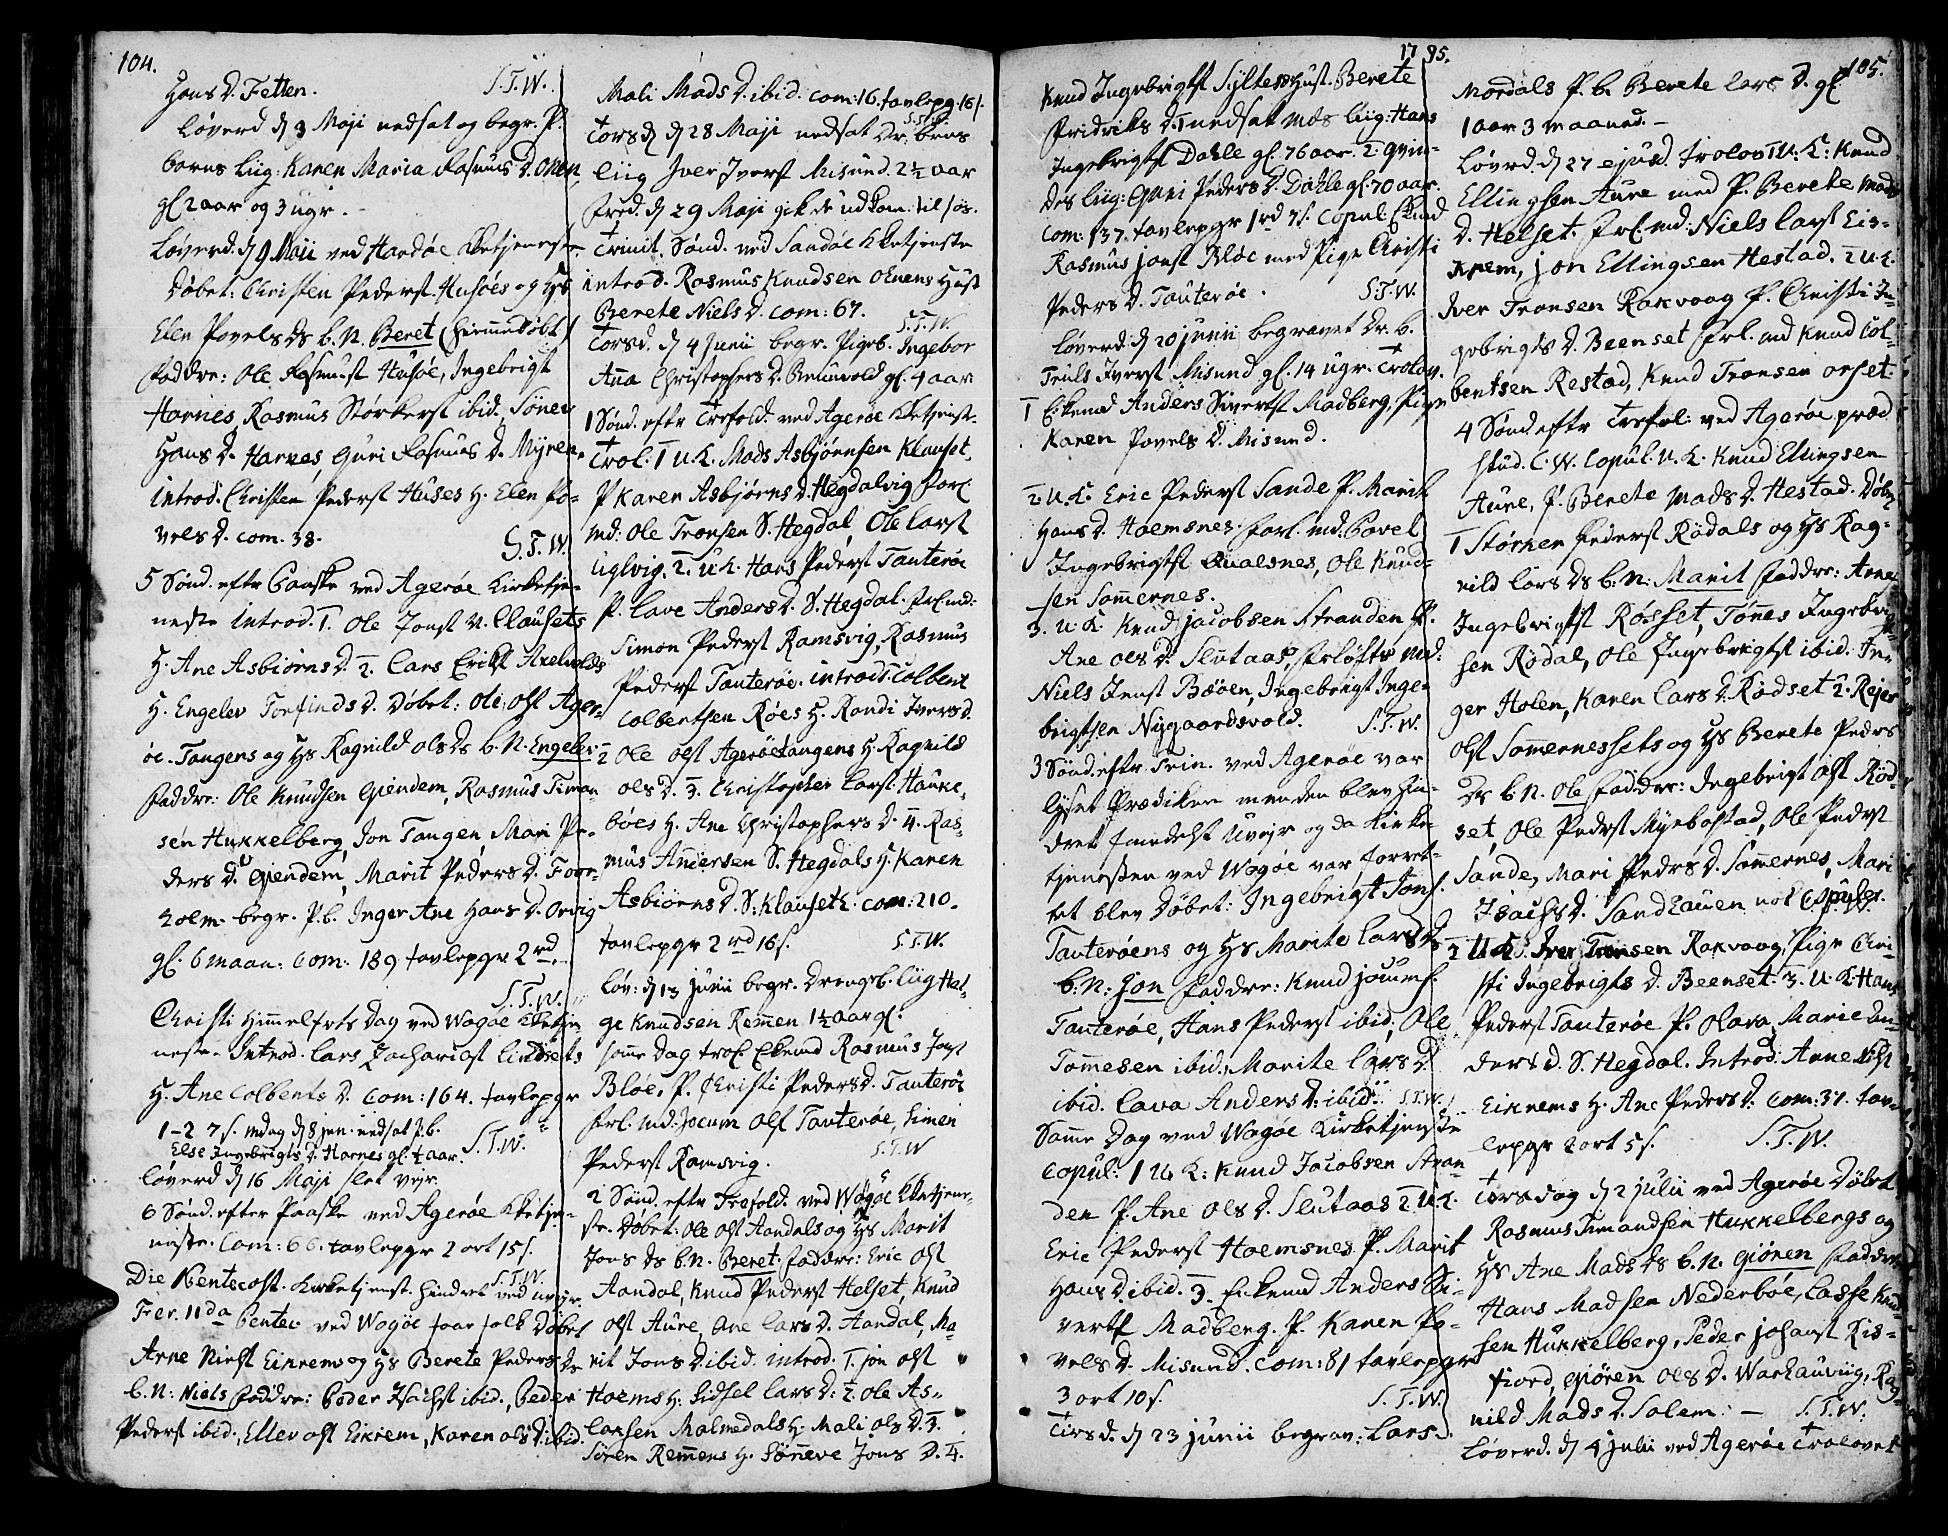 104.
Hans D. Fetten. S.T.W.
Løverd d 3 Maji nedsat og begr. P.
barns liig: Karen Maria Rasmus D.
gl 2 aar og 3 ugr.
Løverd. d 9 Maji ved Harøe Kketjenest
Døbet: Christen Pederst. Husøes og Hs
Elen Povels Ds b. N. Beret (hiemmedøbt)
Faddre: Ole Rasmust Husøe, Ingebrigt
Harnes, Rasmus Størkerst ibid, Sönev
Hans D. Harnes, Guri Rasmus D. Myren.
introd. Christen Pederst Huses H. Elen Po-
vels D. com. 38. S.T.W.
5 Sönd. eftr Paaske ved Agerøe Kirketje-
neste introd. 1. Ole Jonst N. Clausets
H. Ane Asbiørns D. 2. Lars Erikst
H. Engelev Torfinds D. Døbet: Ole Olst Ager-
øe-Tangens og Hs Ragnild Ols Ds b. N. Engelev
Faddre: Ole Knudsen Giendem, Rasmus Timan-
sen Hukkelberg, Jon Tangen, Mari Pe-
ders D. Giendem, Marit Peders D. Foor-
holm. begr. P.b. Inger Ane Hans D. Orvig
gl. 6 maan: com. 189 tavlepgr 2 rd.
S.T.W.
Christi Himmelfrts Dag ved Wagøe Kketje
neste. Introd. Lars Zachariast Lindsets
H. Ane Colbents D. com: 164. tavlepgr
1-2 7 s. mdag d 8 jun. nedsat P.b.
Else Ingebrigts D. Harnes gl. ½ aar. S.T.W.
Løverd d 16 Maji slet vejr.
6 Sönd. efter Paaske ved Agerøe Kketje-
neste. Com: 66. tavlepgr 2 ort 15 s.
S.T.W.
Die Pentecost. Kirketjenest. hindret ved uvejr.
Fer. 11da Pentec. ved Wagøe faae folk Døbet
Arne Nielst Eikrems og Hs Berete Peders Ds
b. N: Niels Faddre: Peder Isachst ibid., Peder
Pederst ibid., Ellev Olst Eikrem, Karen Ols D. ibid.
Mali Mads D. ibid. com: 16. tavlepg. 16 s.
S.T.W.
Torsd d 28 Maji nedsat Dr. bens
liig Iver Iverst Misund. 2½ aar
Fred. d 29 Maji gik de ud kom. til søs.
Trinit. Sönd. ved Sandøe Kketjenste
introd. Rasmus Knudsen Oenens Hust
Berete Niels D. com: 67. S.T.W.
Torsd. d 4 Junii begr. Pigeb. Ingebor
Aña Christophers D. Reinvold gl. 4 aar
1 Sönd. eftr Trefold. ved Agerøe Kketjenste.
Trol. 1 U.K. Mads Asbjørnsen Klauset.
P Karen Asbjørns D. Hegdalvig forl.
md: Ole Tronsen S. Hegdal Ole Larst
Uglvig. 2. U.K. Hans Pederst Tauterøe
P. Lave Anders D. S. Hegdal. frl. md:
Simon Pederst Ramsvig, Rasmus
Pederst Tauterøe. introd: 1 Colbent
Colbentsen Røes H. Randi Ivers D.
2 Ole Olst Agerøetangens H. Ragnild
Ols D. 3. Christopher Larst Hauke-
bøes H. Ane Christophers D. 4. Ras-
mus Andersen S. Hegdals H. Karen
Asbiørns D. S: Klauseth. com: 210.
tavlepgr 2 rd 16 s. S.T.W.
Løv: d 13 Junii begr. Drengeb. liig Hel-
ge Knudsen Remen 1½ aar gl.
samme Dag trol. Ekemd Rasmus Jonst
Bløe, P. Christi Peders D. Tauterøe
frl. md: Jocum Olst Tauterøe, Simen
Pederst Ramsvig. S.T.W
2 Sönd. eftr Trefold. ved Wagøe Kketjene-
ste. Døbet: Ole Olst Aandals og Hs Marit
Jons Ds b. N. Beret. Faddre: Eric Olst
Aandal, Knud Pederst Helset, Knud
Olst Aure, Ane Lars D. Aandal, Ma-
rit Jons D. ibid. introd. 1. Jon Olst
Hoems H: Sidsel Lars D: 2. Ole As-
laksen Malmedals H: Mali Ols D. 3.
Sören Remens H. Sönneve Jons D. 4.
1785.
Knud Ingebrigtst Syltes Hust. Berete
Fridriks D. 1 nedsat mds liig: Hans
Ingebrigtst Dahle gl. 76 aar. 2 qvin-
des liig: Guri Peders D. Dahle gl. 70 aar.
com: 137. tavlepgr 1 rd 7 s. Copul. Ekmd
Rasmus Jonst Bløe med Pige Christi
Peders D. Tauterøe. S.T.W.
Løverd: d 20 Junii begravet Dr. b.
Truls Iverst Misund gl. 14 ugr. Trolov.
1 Ekemd Anders Sivertst Madberg, Pige
Karen Povels D. Misund.
2. U.K. Eric Pederst Sande P. Marit
Hans D. Hoemsnes. forl. md. Povel
Ingebrigtst Qualsnes, Ole Knud-
sen Sømernes.
3. U.K. Knud Jacobsen Stranden P.
Ane Ols D. Slutaas, frløfte md:
Niels Jenst Bøøen, Ingebrigt Inge-
brigtsen Nygaardsvold. S.T.W.
3 Sönd. eftr Trin. ved Agerøe var
lyset Prædiken men den blev hin-
dret formedelst Uvejr og da Kirke
tjenesten ved Wagøe var forret-
tet blev Døbet: Ingebrigt Jons.
Tauterøens og Hs Marite Lars Ds
b. N: Jon Faddre: Knud Joums.
Tauterøe, Hans Pederst ibid, Ole
Tommesen ibid, Marite Lars D.
ibid. Lava Anders D. ibid. S.T.W.
Samme Dag ved Wagøe Kirketjenste
Copul: 1 U.K: Knud Jacobsen Stran-
den P. Ane Ols D. Slutaas 2. U.K.
Eric Pederst Hoemsnes. P. Marit
Hans D. ibid. 3. Eekemd Anders Si-
vertst Madberg. P. Karen Po-
vels D. Misund. com: 81 tavlepgr
3 ort 10 s. S.T.W.
Tirsd. d 23 Junii begrav: Lars
105.
Mordals P. b. Berete Lars D. gl
1 aar 3 maaned. -
Løverd. d 27 ejusd. trolov. 1 U. K: Knud
Ellingsen Aure med P. Berete Mads
D. Helset. frl. md: Niels Larst Eis-
krem, Jon Ellingsen Hestad. 2 U.K.
Iver Tronsen Rakvaag P. Christi In-
gebrigts D. Beenset frl. md Knud Col-
bentsen Restad, Knud Tronsen Orset.
4 Sönd. eftr Trefol: ved Agerøe præd
stud. C.W. Copul. U. K. Knud Ellingsen
Aure, P. Berete Mads D. Hestad. Døbt
1 Størker Pederst Rødals og Hs Rag-
nild Lars Ds b. N: Marit Faddre: Arne
Ingebrigtst Røsset, Tönes Ingebrigt-
sen Rødal, Ole Ingebrigtst ibid. In-
ger Holen, Karen Lars D. Rødset 2. Rejer
Olst Sommernessets og Hs Berete Peders
Ds b. N. Ole Faddre: Ingebrigt Olst Rød-
set, Ole Pederst Myrbøstad, Ole Pederst
Sande, Mari Peders D. Sommernes, Mari
Isachs D. Sandhauen not Copuler.
2 U.K. Iver Tronsen Rakvaag, Pige Chri-
sti Ingebrigts D. Beenset. 3. U. K. Hans
Pederst Tauterøe P. Olava Marie An-
ders D. S. Hegdal. Introd: Arne Nilst
Eikrems H. Ane Peders D. com: 37. tav-
lepgr 2 ort 5 s. S.T.W.
Torsdag d 2 Julii ved Agerøe Døbet
Rasmus Timandsen Hukkelbergs og
Hs Ane Mads Ds b. N. Giören Faddre
Hans Madsen Nederbøe, Lasse Knud-
sen Hukkelberg, Peder Johanst Ris-
fiord, Giören Ols D. Warhauviig, Rag-
nild Mads D. Solem. - S.T.W.
Løverd. d 4 Julii ved Agerøe Trolovet